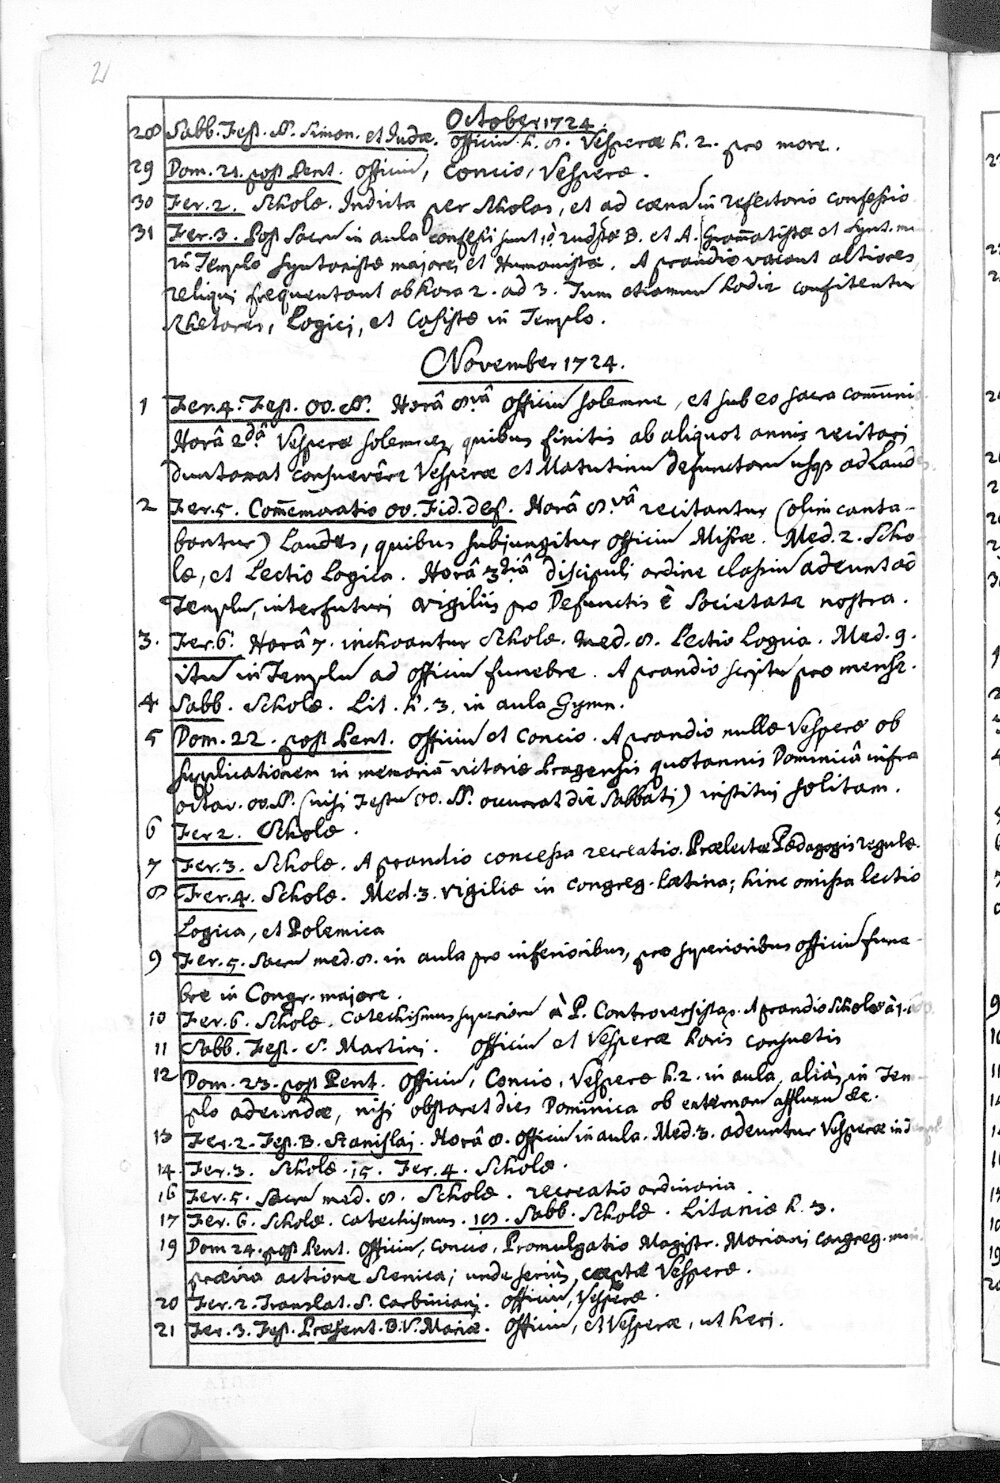 2
October 1724.
28 Sabb. Fest. SS. Simon. et Judæ. Officiū h. 8. Vesperæ h. 2. pro more.
29 Dom. 21. post Pent. Officiū, Concio, Vesperæ.
30 Fer. 2. Scholæ. Indicta per Scholas, et ad cœnā in refectorio confessio
31 Fer. 3. Post Sacrū in aula confessi sunt Rudistæ B. et A. Grammatistæ et Synt. mi
in Templo Syntaxistæ majores et Humanistæ. A prandio vacant altiores,
reliqui frequentant ab hora 2. ad 3. Tum etiamnū hodie confitentur
Rhetores, Logici, et Casistæ in Templo.
November 1724.
1 Fer. 4. Fest. OO. SS. Horâ 8.vâ Officiū solemne, et sub eo sacra communi
Horâ 2dâ Vesperæ solemnes, quibus finitis ab aliquot annis recitari
duntaxat consuevêre Vesperæ et Matutinū defunctorū usq ad Laudes.
2 Fer. 5. Com̄emoratio OO. Fid. def. Horâ 8.vâ recitantur (olim canta-
bantur) Laudes, quibus subjungitur Officiū Missæ. Med. 2. Scho
læ, et Lectio Logica. Horâ 3tiâ discipuli ordine classiū adeunt ad
Templū, interfuturi vigiliis pro Defunctis è Societate nostra.
3. Fer. 6. Horâ 7. inchoantur Scholæ. Med. 8. Lectio Logica. Med. 9.
itū in Templū ad officiū funebre. A prandio scriptū pro mense.
4 Sabb. Scholæ. Lit. h. 3. in aula Gymn.
5 Dom. 22. post Pent. Officiū et Concio. A prandio nullæ Vesperæ ob
supplicationem in memoriā victoriæ Pragensis quotannis Dominicâ infra
octav. OO. SS. (nisi Festū OO. SS. occurrat die Sabbati) institui solitam.
6 Fer 2. Scholæ.
7 Fer. 3. Scholæ. A prandio concessa recreatio. Prælectæ Pædagogis regulæ.
8 Fer. 4. Scholæ. Med. 3. vigiliæ in congreg. Latina; hinc omissa lectio
Logica, et Polemica
9 Fer. 5. Sacrū med. 8. in aula pro inferioribus, pro superioribus officiū fune-
bre in Congr. majore.
10 Fer. 6. Scholæ. Catechismus superiorū à P. Controversista. A prandio Scholæ à 1.
11 Sabb. Fest. S. Martini. Officiū et Vesperæ horis consuetis
12 Dom. 23. post Pent. Officiū, Concio, Vesperæ h. 2. in aula, aliàs in Tem-
plo adeundæ, nisi obstaret dies Dominica ob externorū affluxū &c.
13 Fer. 2. Fest. B. Stanislai. Horâ 8. Officiū in aula. Med. 3. adeuntur Vesperæ in
14. Fer. 3. Scholæ. 15. Fer. 4. Scholæ.
16 Fer. 5. Sacrū med. 8. Scholæ. recreatio ordinaria.
17 Fer. 6. Scholæ. Catechismus. 18. Sabb. Scholæ. Litaniæ h. 3.
19 Dom 24. post Pent. Officiū, Concio, Promulgatio Magistr. Mariani congreg.
prævia actione scenica; unde seriùs cœptæ Vesperæ.
20 Fer. 2. Translat. S. Corbiniani. Officiū, Vesperæ.
21 Fer. 3. Fest. Præsent. B. V. Mariæ. Officiū, et Vesperæ, ut heri.